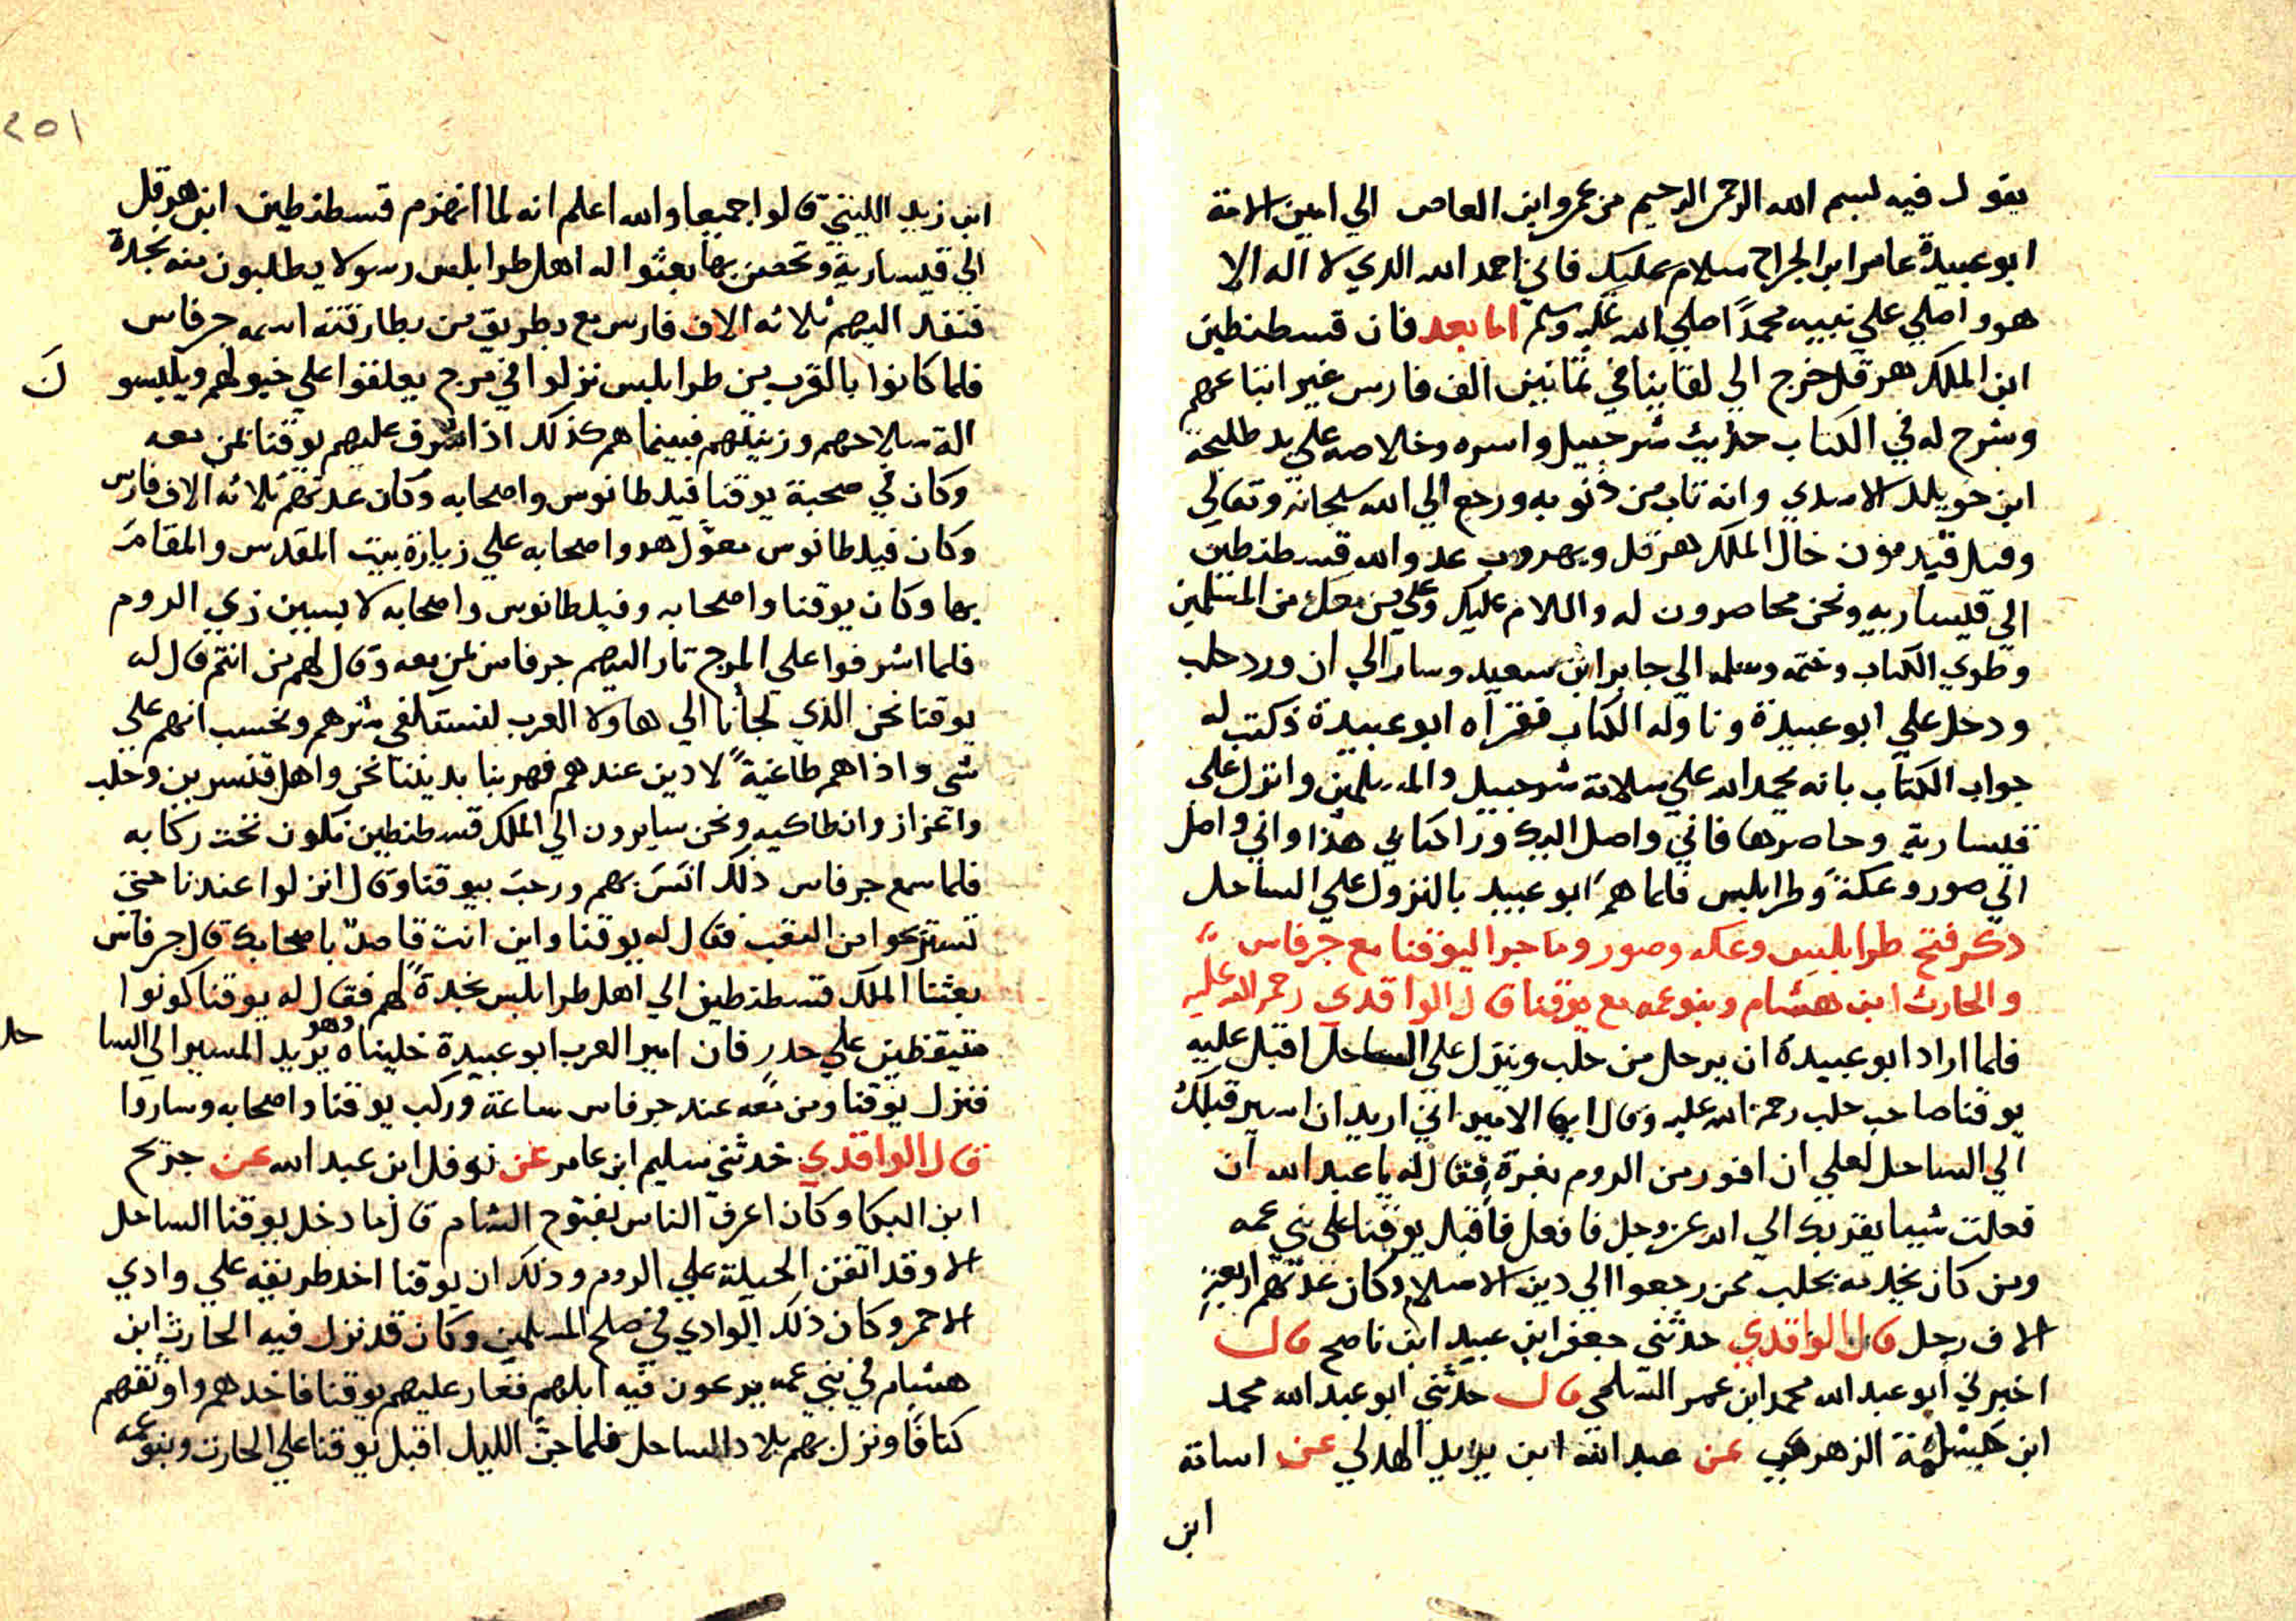 يقول فيه لبسم الله الرحمن الرحيم من عمرو ابن العاص الي امين الامة
ابو عبيدة عامر ابن الجراح سلام عليك فاني احمد الله الدي لا اله الا
هو واصلي علي نبيه محمداً صلي الله عليه وسلم اما بعد فان قسطنطين
ابن الملك هرقل خرج الي لقاينا في ثمانين الف فارس غير اتباعهم
وشرح له في الكتاب حديث شرحبيل واسره وخلاصه علي يد طليحة
ابن خويلد الاسدي وانه تاب من ذنوبه ورجع الي الله سبحانه وتعالي
وقتل قيدمون خال الملك هرقل وبهروب عدو الله قسطنطين
الي قيساريه ونحن محاصرون له والسلام عليك وعلي من معك من المسلمين
وطوي الكتاب وختمه وسلمه الي جابر ابن سعيد وسار الي ان ورد حلب
ودخل علي ابو عبيدة وناوله الكتاب فقراه ابو عبيدة فكتب له
جواب الكتاب بانه يحمد الله علي سلامة شرحبيل والمسلمين وانزل على
قيسارية وحاصرها فاني واصل اليك ورا كتابي هذا واني واصل
الي صور وعكة وطرابلس فلما هم ابو عبيد بالنزول علي الساحل
ذكر فتح طرابلس وعكه وصور وما جرا ليوقنا مع جرفاس
والحارث ابن هشام وبنو عمه مع يوقنا قال الواقدي رحمه الله عليه
فلما اراد ابو عبيدة ان يرحل من حلب وينزل علي الساحل اقبل عليه
يوقنا صاحب حلب رحمة الله عليه وقال ايها الامير اني اريد ان اسير قبلك
الي الساحل لعلي ان افوز من الروم بغرة فقال له يا عبد الله ان
فعلت شيا يقربك الي الله عز وجل فافعل فاقبل يوقنا علي بني عمه
ومن كان يخدمه بحلب ممن رجعوا الي دين الاسلام وكان عدتهم اربعة
الاف رجل قال الواقدي حدثني جعفر ابن عبيد ابن ناصح قال
اخبرني ابو عبد الله محمد ابن عمر السلمي قال حدثني ابو عبد الله محمد
ابن الزهري عن عبد الله ابن يزيد الهدلي عن اسامة
ابن
٢٥١
ابن زيد الليثي قالوا جميعا والله اعلم انه لما انهزم قسطنطين ابن هرقل
الي قيسارية وتحصن بها بعثوا اله اهل طرابلس رسولا يطلبون منه نجدة
فنفد اليهم ثلاثه الاف فارس مع بطريق من بطارقته اسمه جرفاس
فلما كانوا بالقرب من طرابلس نزلوا في مرج يعلفوا علي خيولهم ويلبسو
الة سلاحهم وزينتهم فبينما هم كذلك اذا اشرف عليهم يوقنا بمن معه
وكان في صحبة يوقنا فيلطانوس واصحابه وكان عدتهم ثلاثه الاف فارس
وكان فيلطانوس معول هو واصحابه علي زيارة بيت المقدس والمقام
بها وكان يوقنا واصحابه وفيلطانوس واصحابه لابسين زي الروم
فلما اشرفوا على المرج تار اليهم جرفاس بمن معه وقال لهم من انتم قال له
يوقنا نحن الذي لجأنا الي هاولا العرب لنستكفي شرهم ونحسب انهم علي
شي واذا هم طاغية لا دين عندهم فهربنا بديننا نحن واهل قنسرين وحلب
واعزاز وانطاكيه ونحن سايرون الي الملك قسطنطين نكون تحت ركابه
فلما سمع جرفاس ذلك انس بهم ورحب بيوقنا وقال انزلوا عندنا حتي
تستريحوا من التعب فقال له يوقنا واين انت قاصد باصحابك قال جرفاس
بعثنا الملك قسطنطين الي اهل طرابلس نجدة لهم فقال له يوقنا كونوا
متيقظين علي حدر فان امير العرب ابو عبيدة خليناه وهو يريد المسير الي السا حل
فنزل يوقنا ومن معه عند جرفاس ساعة وركب يوقنا واصحابه وساروا
قال الواقدي حدثني سليم ابن عامر عن نوفل ابن عبد الله عن جريح
ابن البكا وكان اعرف الناس بفتوح الشام قال ما دخل يوقنا الساحل
الا وقد اتقن الحيلة علي الروم وذلك ان يوقنا اخد طريقه علي وادي
الاحمر وكان ذلك الوادي في صلح المسلمين وكان قد نزل فيه الحارث ابن
هشام في بني عمه يرعون فيه ابلهم فغار عليهم يوقنا فاخدهم واوثقهم
كتافا ونزل بهم بلاد الساحل فلما جن الليل اقبل يوقنا علي الحارث وبنو عمه